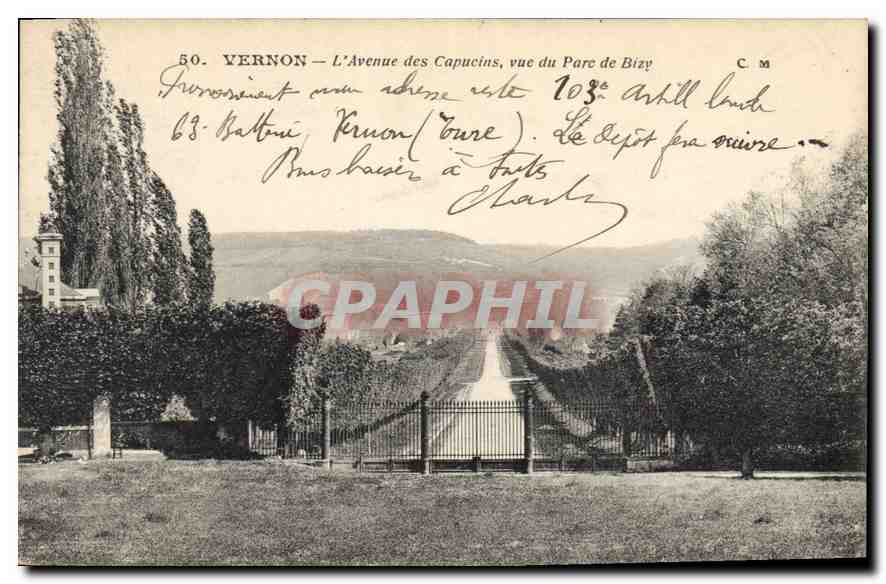 50. VERNON — L'Avenue des Capucins, vue du Parc de Bizy
C. M
Provisoirement mon adresse reste 103e Artill lourde
63 Batterie Vernon (Eure). Le Dépôt fera suivre
Bons baisers à toutes
Charles
CPAPHIL